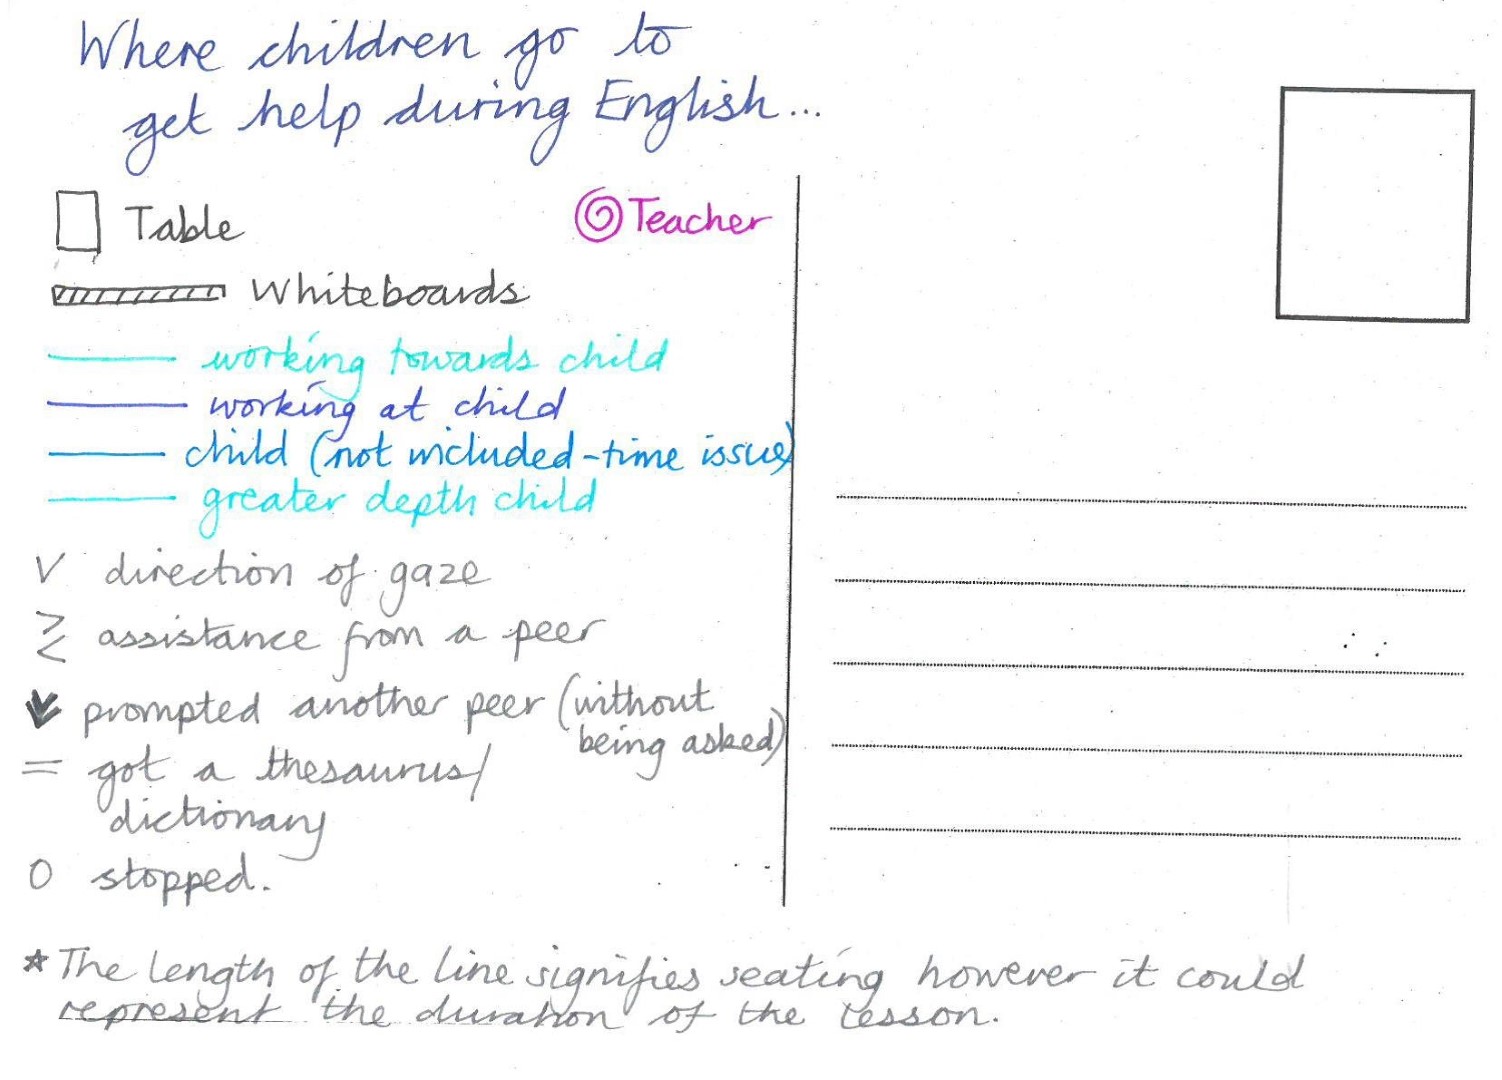 Where children go to
get help during English...
Table
Teacher
Whiteboards
working towards child
working at child
child (not included-time issue)
greater depth child
V direction of gaze
assistance from a peer
prompted another peer (without
being asked)
= got a thesaurus/
dictionary
O stopped.
* The length of the line signifies seating however it could
represent the duration of the lesson.